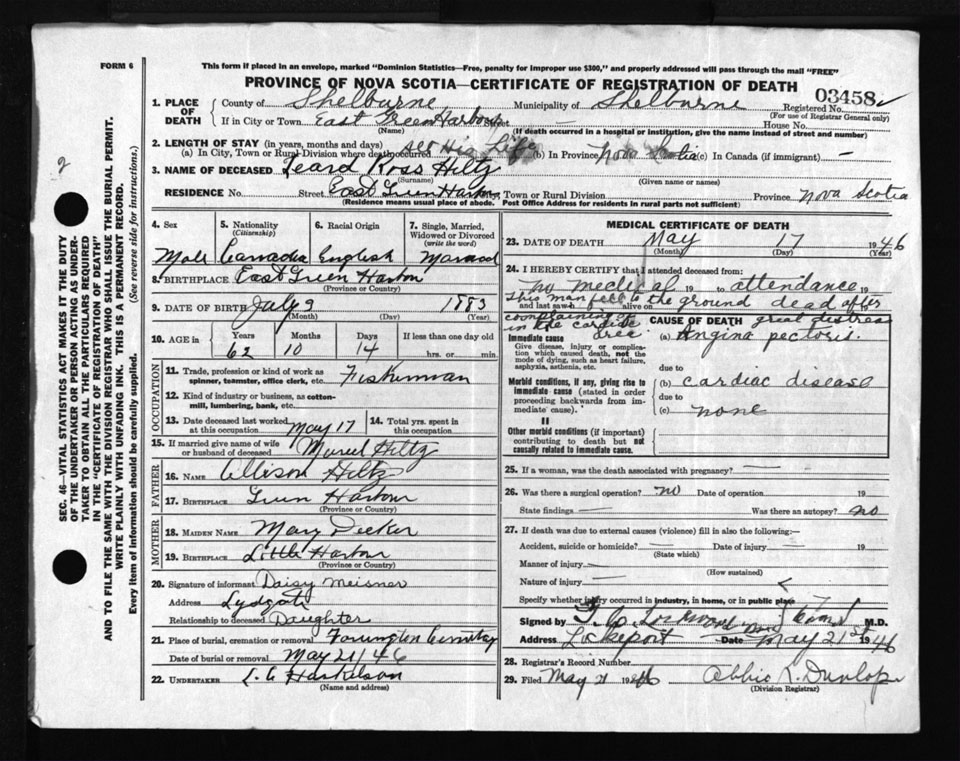 FORM 6
This form if placed in an envelope, marked "Dominion Statistics—Free, penalty for improper use $300," and properly addressed will pass through the mail "FREE"
PROVINCE OF NOVA SCOTIA—CERTIFICATE OF REGISTRATION OF DEATH
03458
1. PLACE OF DEATH County of Shelburne Municipality of Shelburne Registered No.
(For use of Registrar General only)
If in City or Town East Green Harbour Street House No.
(Name) (If death occurred in a hospital or institution, give the name instead of street and number)
2. LENGTH OF STAY (in years, months and days)
(a) In City, Town or Rural Division where death occurred All His Life (b) In Province Nova Scotia (c) In Canada (if immigrant) —
3. NAME OF DECEASED Leard Ross Hiltz
(Surname) (Given name or names)
RESIDENCE No. Street East Green Harbour City, Town or Rural Division Province Nova Scotia
(Residence means usual place of abode. Post Office Address for residents in rural parts not sufficient)
4. Sex 5. Nationality (Citizenship) 6. Racial Origin 7. Single, Married, Widowed or Divorced (write the word)
Male Canadia English Married
8. BIRTHPLACE East Green Harbour
(Province or Country)
9. DATE OF BIRTH July 9 1883
(Month) (Day) (Year)
10. AGE in Years Months Days If less than one day old
62 10 14 hrs. or min.
OCCUPATION
11. Trade, profession or kind of work as spinner, teamster, office clerk, etc. Fisherman
12. Kind of industry or business, as cotton-mill, lumbering, bank, etc.
13. Date deceased last worked at this occupation May 17 14. Total yrs. spent in this occupation
15. If married give name of wife or husband of deceased Muriel Hiltz
FATHER
16. NAME Allison Hiltz
17. BIRTHPLACE Green Harbour
(Province or Country)
MOTHER
18. MAIDEN NAME Mary Decker
19. BIRTHPLACE Little Harbour
(Province or Country)
20. Signature of informant Daisy Meisner
Address Lydgate
Relationship to deceased Daughter
21. Place of burial, cremation or removal Cemetery
Date of burial or removal May 21/46
22. UNDERTAKER L. C
(Name and address)
MEDICAL CERTIFICATE OF DEATH
23. DATE OF DEATH May 17 1946
(Month) (Day) (Year)
24. I HEREBY CERTIFY that I attended deceased from:
no medical 19 to attendance 19
and last saw h alive on 19
This man fell to the ground dead after
complaining of great distress
in the cardiac area.
CAUSE OF DEATH
Immediate cause (a) Angina pectoris.
Give disease, injury or complication which caused death, not the mode of dying, such as heart failure, asphyxia, asthenia, etc.
due to
Morbid conditions, if any, giving rise to immediate cause (stated in order proceeding backwards from immediate cause).
(b) cardiac disease
due to
(c) none
II
Other morbid conditions (if important) contributing to death but not causally related to immediate cause.
25. If a woman, was the death associated with pregnancy? —
26. Was there a surgical operation? no Date of operation 19
State findings — Was there an autopsy? no
27. If death was due to external causes (violence) fill in also the following:—
Accident, suicide or homicide? — Date of injury — 19
(State which)
Manner of injury —
(How sustained)
Nature of injury —
Specify whether injury occurred in industry, in home, or in public place
Signed by M.D.
Address Lockeport Date May 21st 1946
28. Registrar's Record Number
29. Filed May 21 1946 Abbie L. Dunlop
(Division Registrar)
2
SEC. 46—VITAL STATISTICS ACT MAKES IT THE DUTY
OF THE UNDERTAKER OR PERSON ACTING AS UNDER-
TAKER TO OBTAIN ALL THE PARTICULARS REQUIRED
IN THE "CERTIFICATE OF REGISTRATION OF DEATH"
AND TO FILE THE SAME WITH THE DIVISION REGISTRAR WHO SHALL ISSUE THE BURIAL PERMIT.
WRITE PLAINLY WITH UNFADING INK. THIS IS A PERMANENT RECORD.
Every item of information should be carefully supplied. (See reverse side for instructions.)